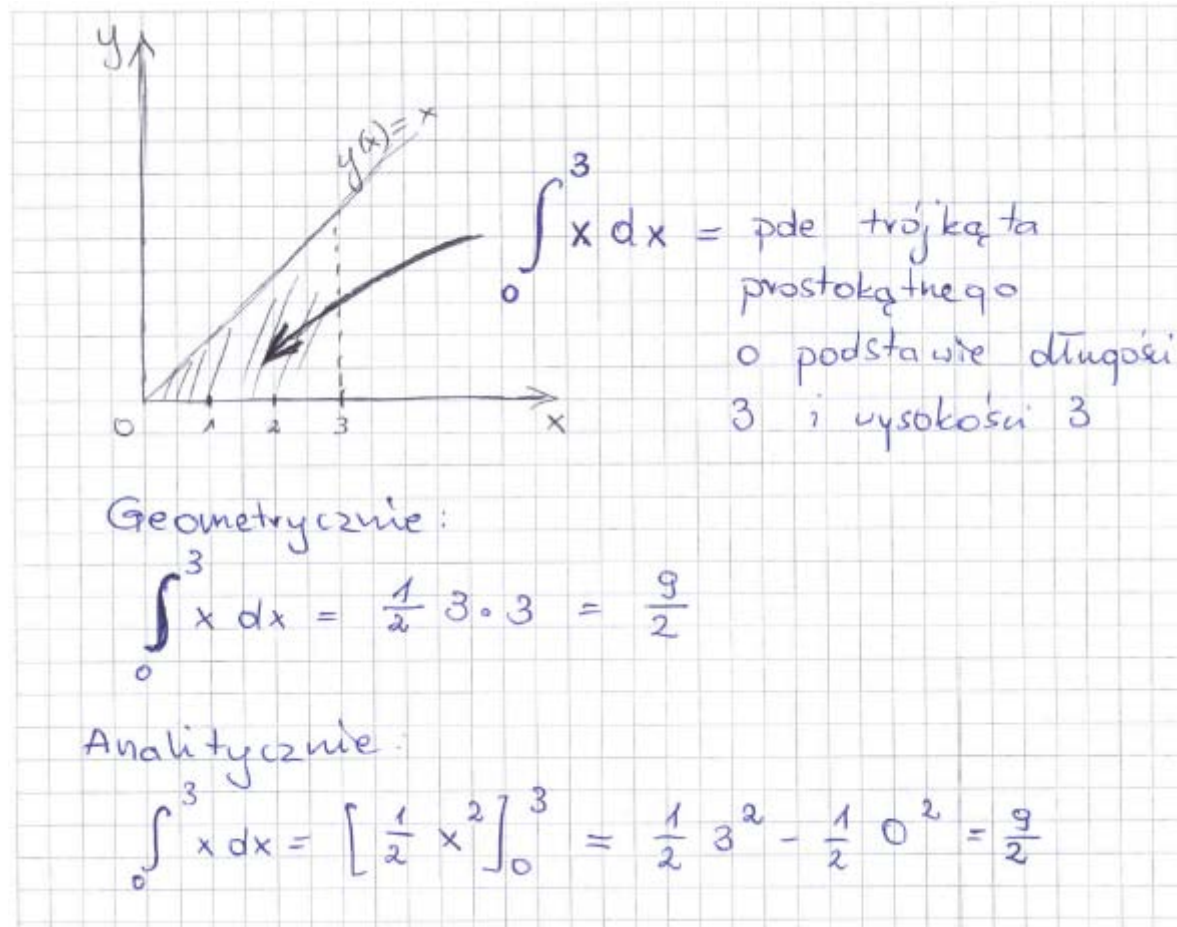 y
y(x) = x
∫₀³ x dx = pole trójkąta
prostokątnego
o podstawie długości
3 i wysokości 3
0 1 2 3 x
Geometrycznie:
∫₀³ x dx = 1/2 3 · 3 = 9/2
Analitycznie:
∫₀³ x dx = [1/2 x²]₀³ = 1/2 3² - 1/2 0² = 9/2